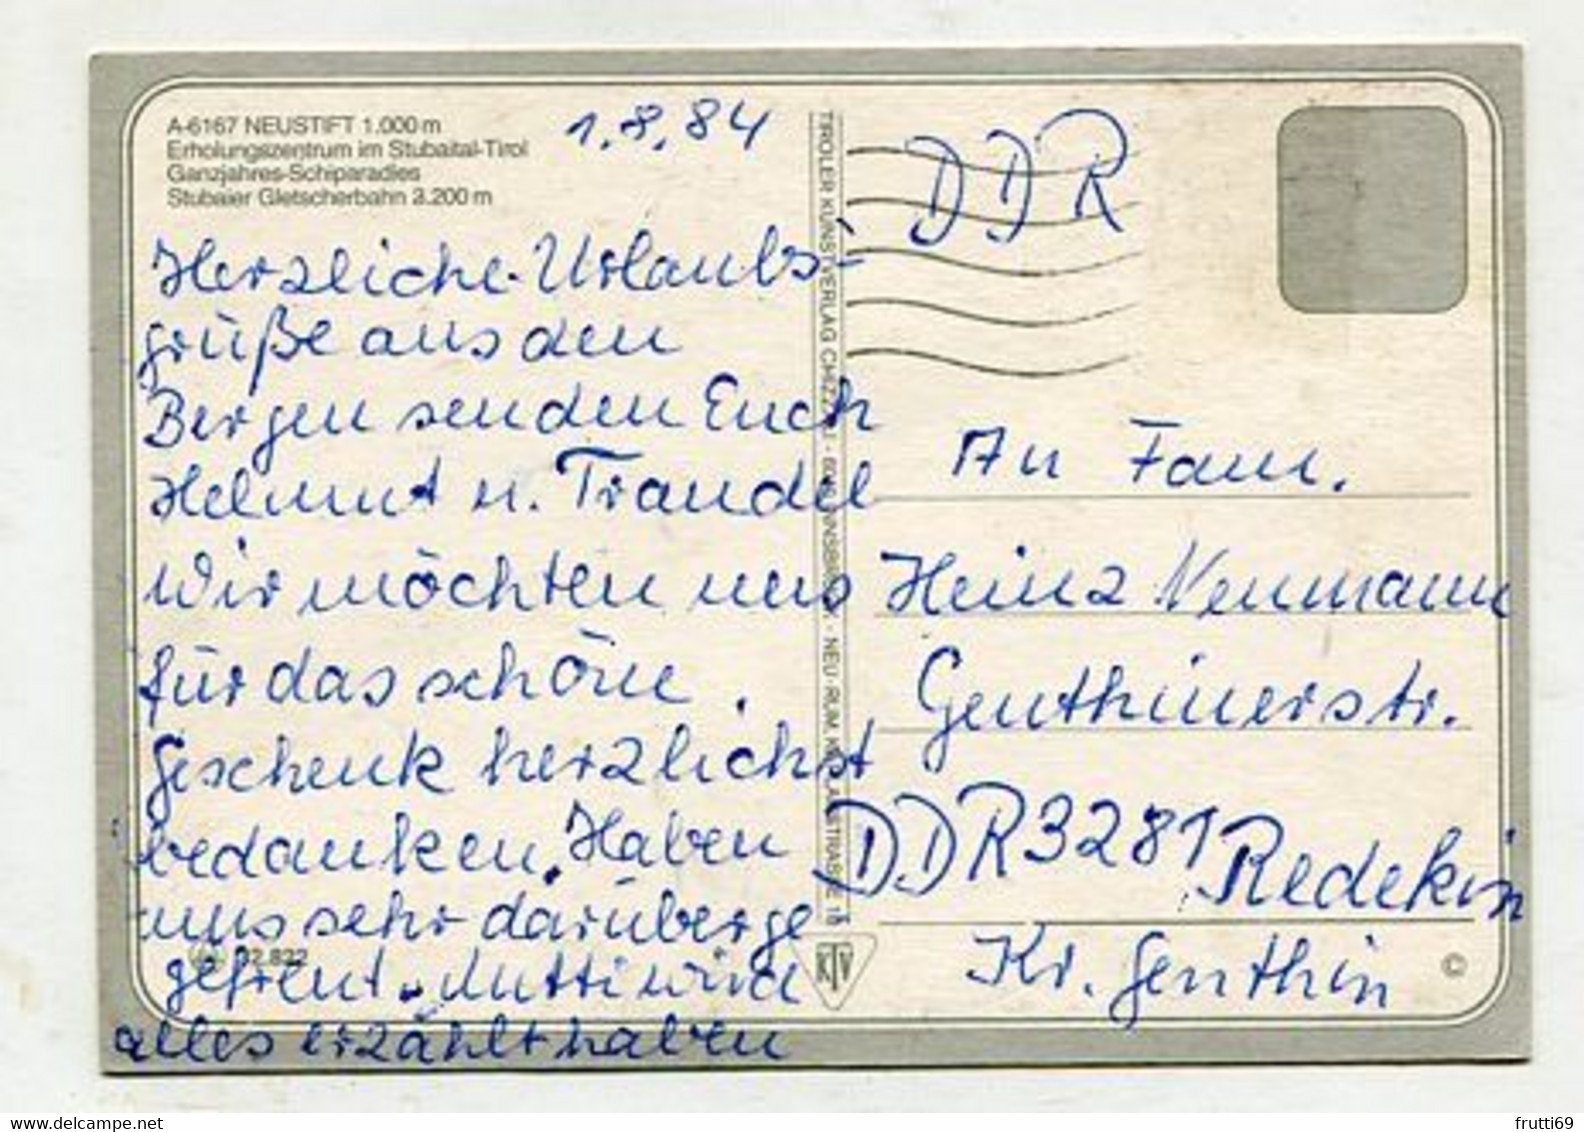 A-6167 NEUSTIFT 1.000 m
Erholungszentrum im Stubaital-Tirol
Ganzjahres-Schiparadies
Stubaier Gletscherbahn 3.200 m
1.8.84
Herzliche Urlaubs-
grüße aus den
Bergen senden Euch
Helmut u. Traudel
Wir möchten uns
für das schöne
Geschenk herzlichst
bedanken. Haben
uns sehr darüber ge
gefreut. Mutti wird
alles erzählt haben
32.822
TIROLER KUNSTVERLAG CHIZZALI - INNSBRUCK - NEU-RUM, STRASSE 15
KTV
DDR
An Fam.
Heinz Neumann
Genthinerstr.
DDR 3281 Redekin
Kr. Genthin
©
www.delcampe.net
frutti69